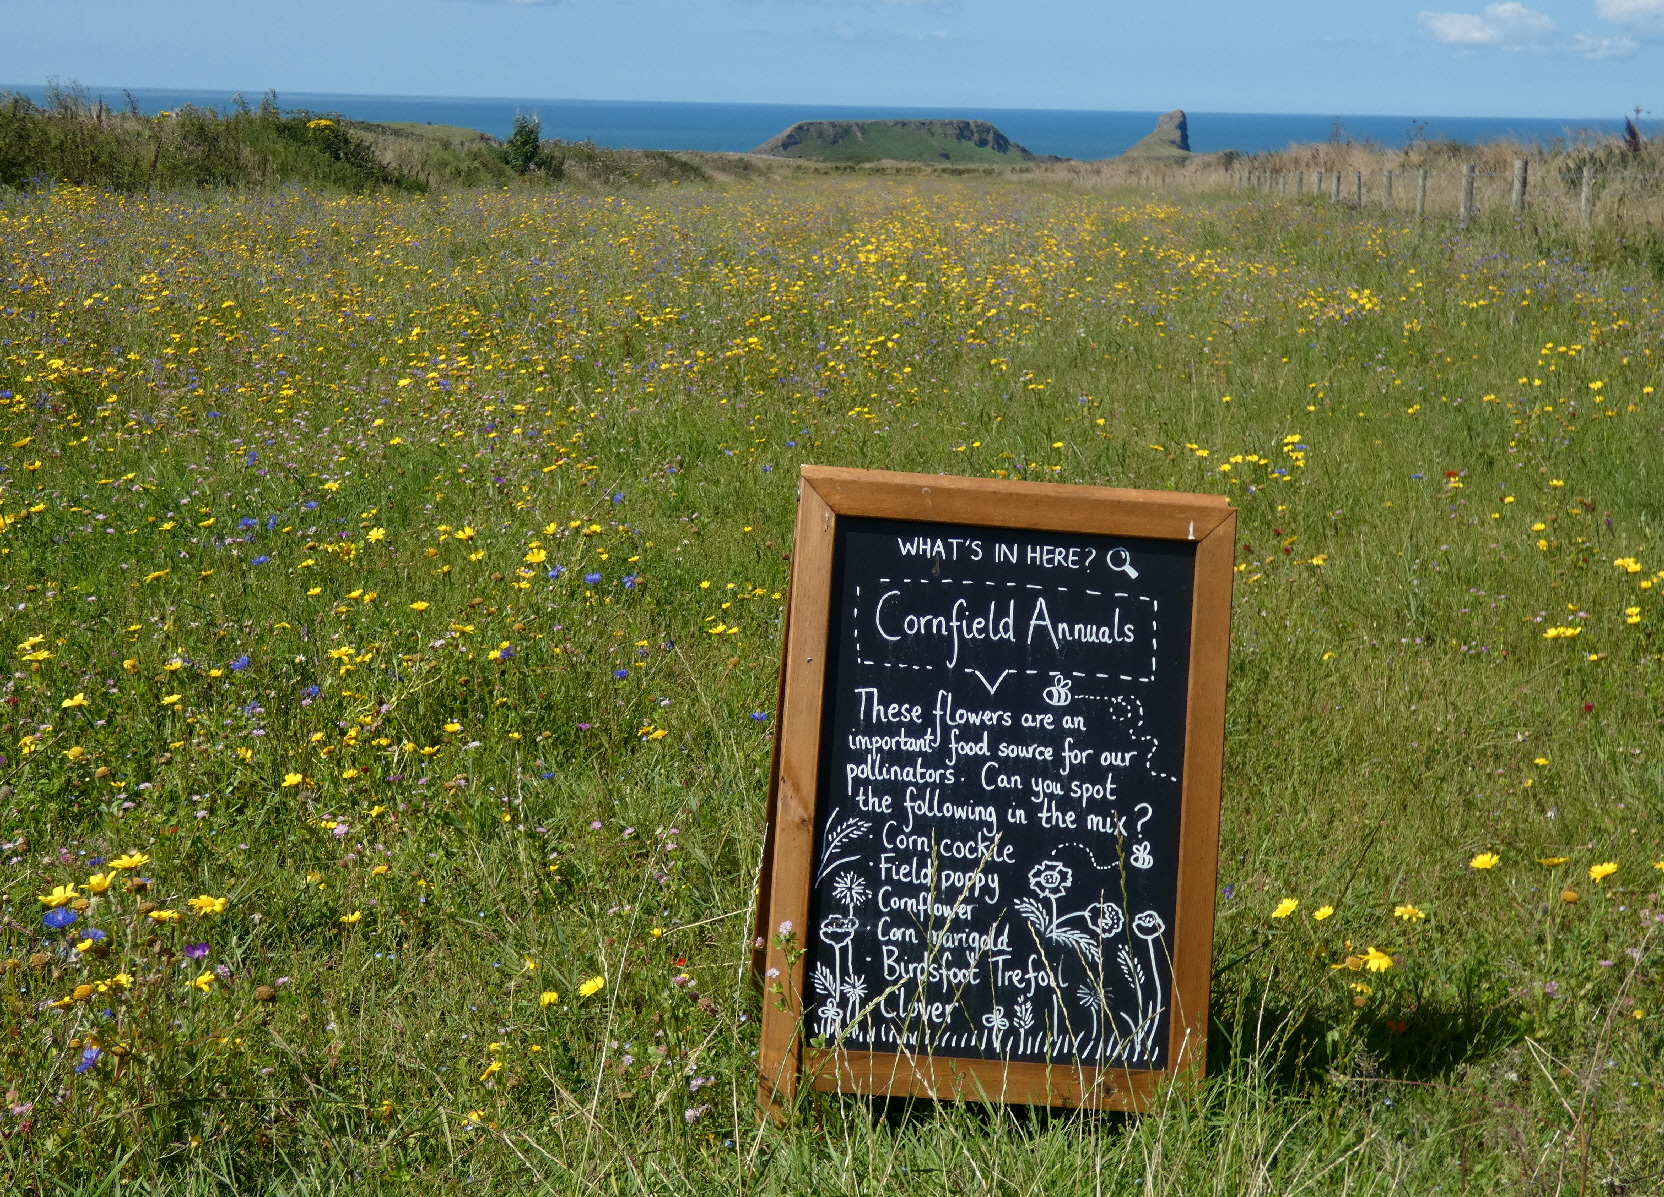 WHAT'S IN HERE?
Cornfield Annuals
These flowers are an
important food source for our
pollinators. Can you spot
the following in the mix?
· Corn cockle
· Field poppy
· Cornflower
· Corn marigold
· Birdsfoot Trefoil
Clover